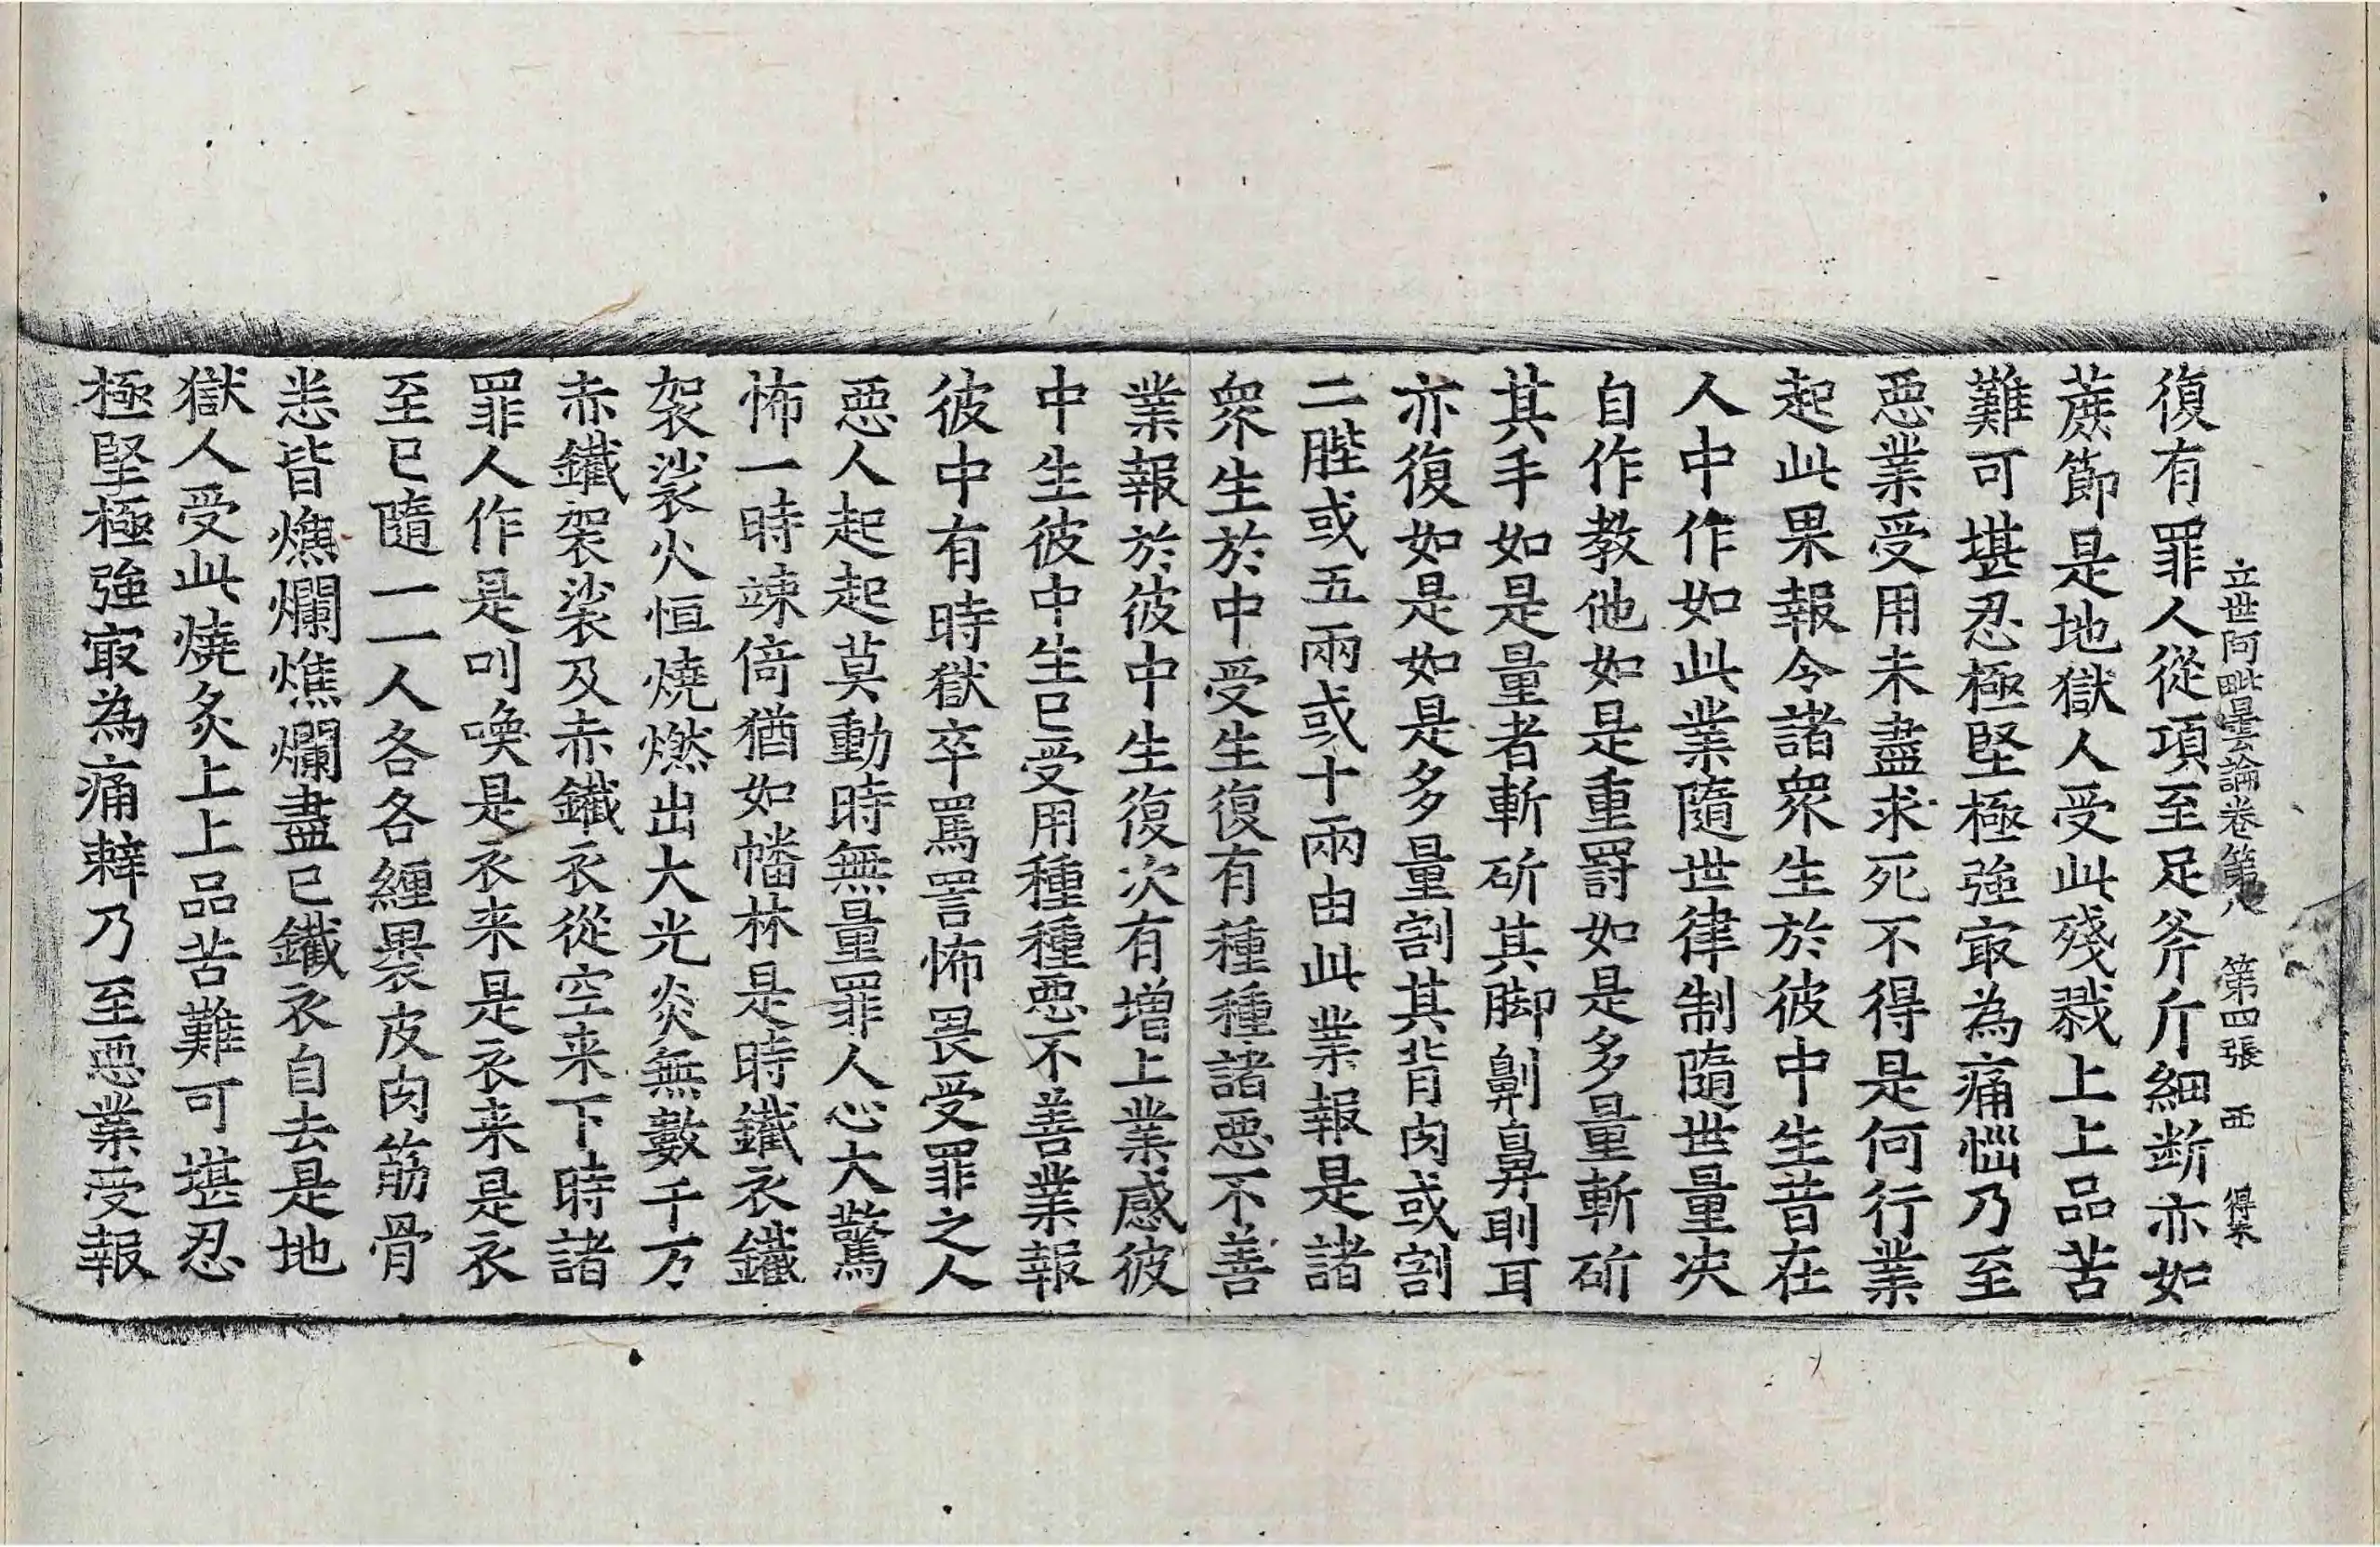 立世阿毗曇論卷第八 第四張 西 得宋
復有罪人從項至足斧斤細斷亦如
蔗節是地獄人受此殘戮上上品苦
難可堪忍極堅極強㝡為痛惱乃至
惡業受用未盡求死不得是何行業
起此果報令諸衆生於彼中生昔在
人中作如此業隨世律制隨世量决
自作教他如是重罸如是多量斬斫
其手如是量者斬斫其脚劓鼻刵耳
亦復如是如是多量割其背肉或割
二䏶或五兩或十兩由此業報是諸
衆生於中受生復有種種諸惡不善
業報於彼中生復次有增上業感彼
中生彼中生已受用種種惡不善業報
彼中有時獄卒罵詈怖畏受罪之人
惡人起起莫動時無量罪人心大驚
怖一時竦倚猶如幡林是時鐵衣鐵
袈裟火恒燒燃出大光炎無數千万
赤鐵袈裟及赤鐵衣從空来下時諸
罪人作是叫喚是衣来是衣来是衣
至已隨一一人各各纏褁皮肉筋骨
悉皆燋爛燋爛盡已鐵衣自去是地
獄人受此燒炙上上品苦難可堪忍
極堅極強㝡為痛辢乃至惡業受報